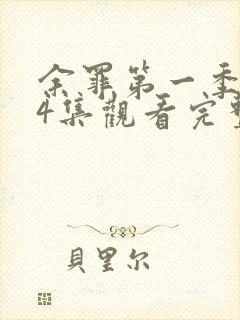 余罪第一季
4集觀看完整
貝里尔